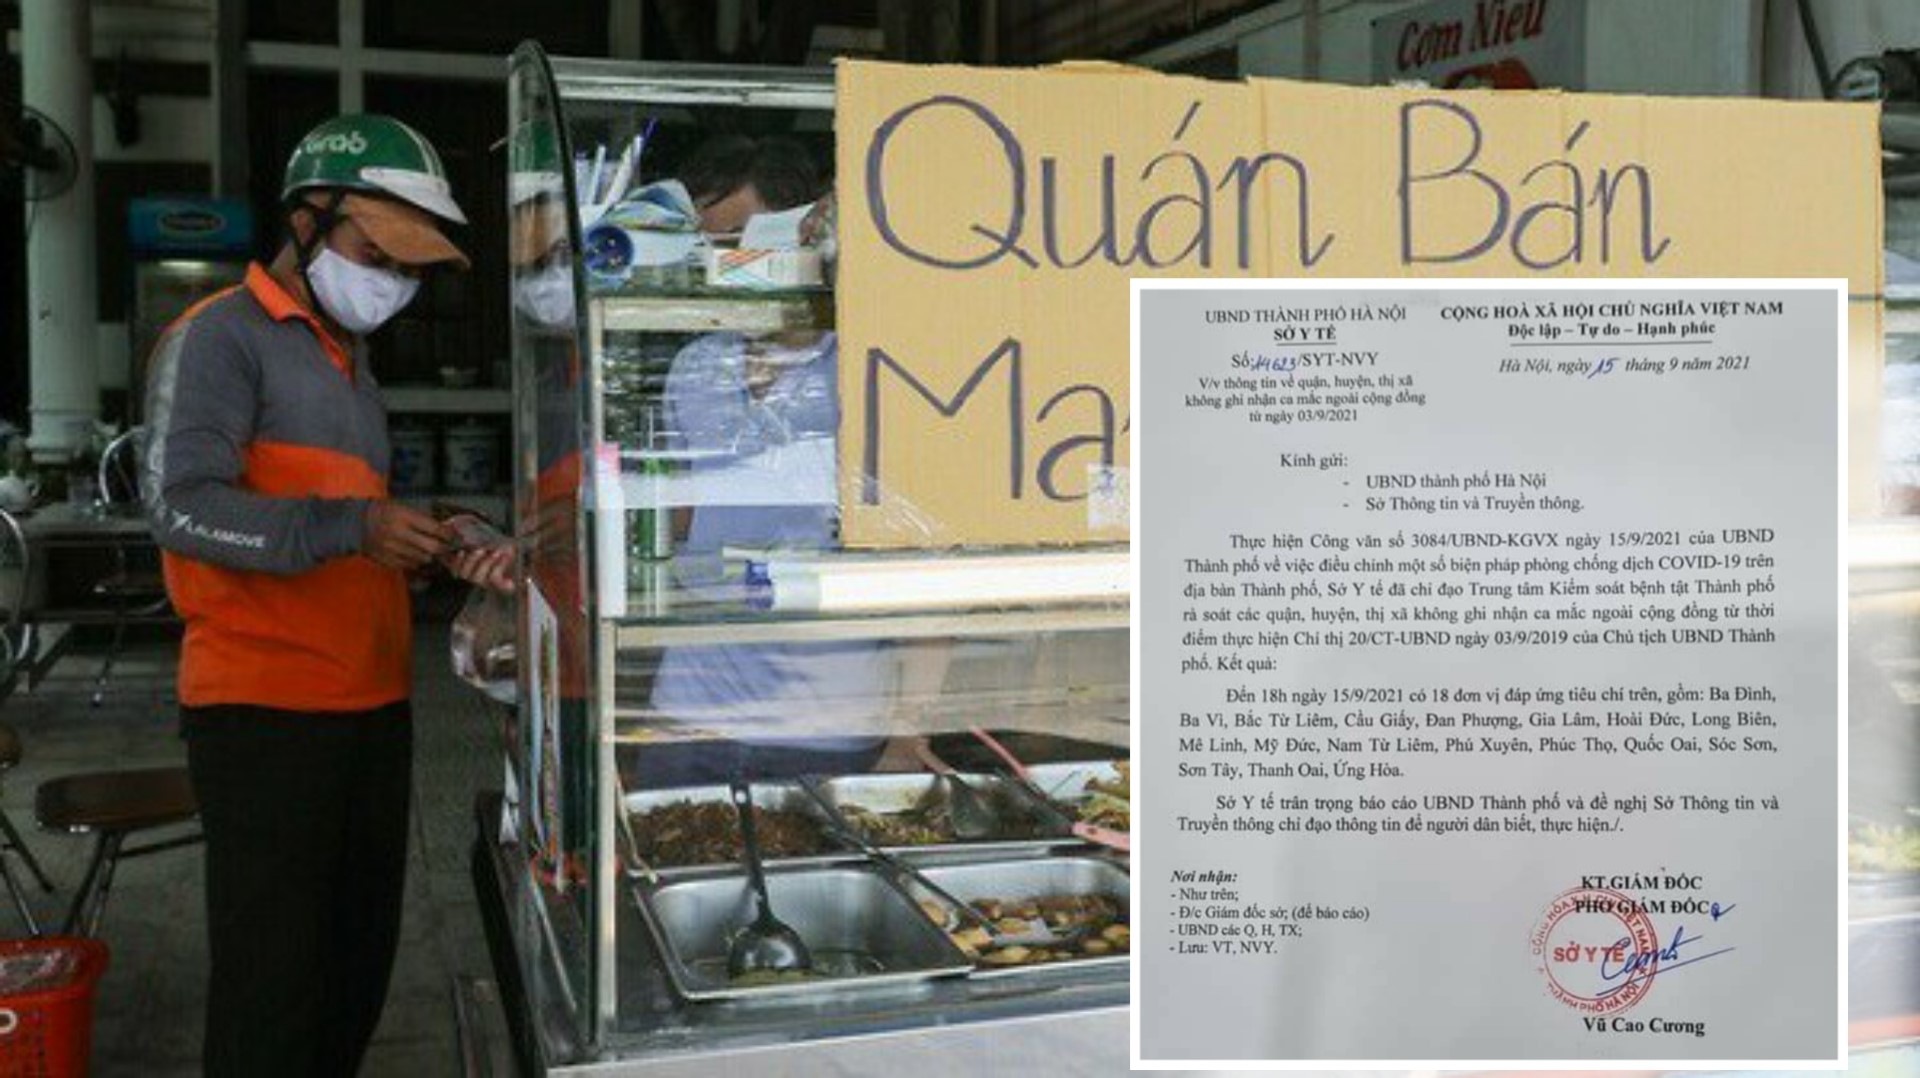 Grab
LALAMOVE
Cơm Niêu
Quán Bán
Ma
UBND THÀNH PHỐ HÀ NỘI
SỞ Y TẾ
Số:14623/SYT-NVY
V/v thông tin về quận, huyện, thị xã
không ghi nhận ca mắc ngoài cộng đồng
từ ngày 03/9/2021
CỘNG HOÀ XÃ HỘI CHỦ NGHĨA VIỆT NAM
Độc lập – Tự do – Hạnh phúc
Hà Nội, ngày 15 tháng 9 năm 2021
Kính gửi:
- UBND thành phố Hà Nội
- Sở Thông tin và Truyền thông.
Thực hiện Công văn số 3084/UBND-KGVX ngày 15/9/2021 của UBND
Thành phố về việc điều chỉnh một số biện pháp phòng chống dịch COVID-19 trên
địa bàn Thành phố, Sở Y tế đã chỉ đạo Trung tâm Kiểm soát bệnh tật Thành phố
rà soát các quận, huyện, thị xã không ghi nhận ca mắc ngoài cộng đồng từ thời
điểm thực hiện Chỉ thị 20/CT-UBND ngày 03/9/2019 của Chủ tịch UBND Thành
phố. Kết quả:
Đến 18h ngày 15/9/2021 có 18 đơn vị đáp ứng tiêu chí trên, gồm: Ba Đình,
Ba Vì, Bắc Từ Liêm, Cầu Giấy, Đan Phượng, Gia Lâm, Hoài Đức, Long Biên,
Mê Linh, Mỹ Đức, Nam Từ Liêm, Phú Xuyên, Phúc Thọ, Quốc Oai, Sóc Sơn,
Sơn Tây, Thanh Oai, Ứng Hòa.
Sở Y tế trân trọng báo cáo UBND Thành phố và đề nghị Sở Thông tin và
Truyền thông chỉ đạo thông tin để người dân biết, thực hiện./.
Nơi nhận:
- Như trên;
- Đ/c Giám đốc sở; (để báo cáo)
- UBND các Q, H, TX;
- Lưu: VT, NVY.
KT.GIÁM ĐỐC
PHÓ GIÁM ĐỐC
SỞ Y TẾ
Vũ Cao Cương